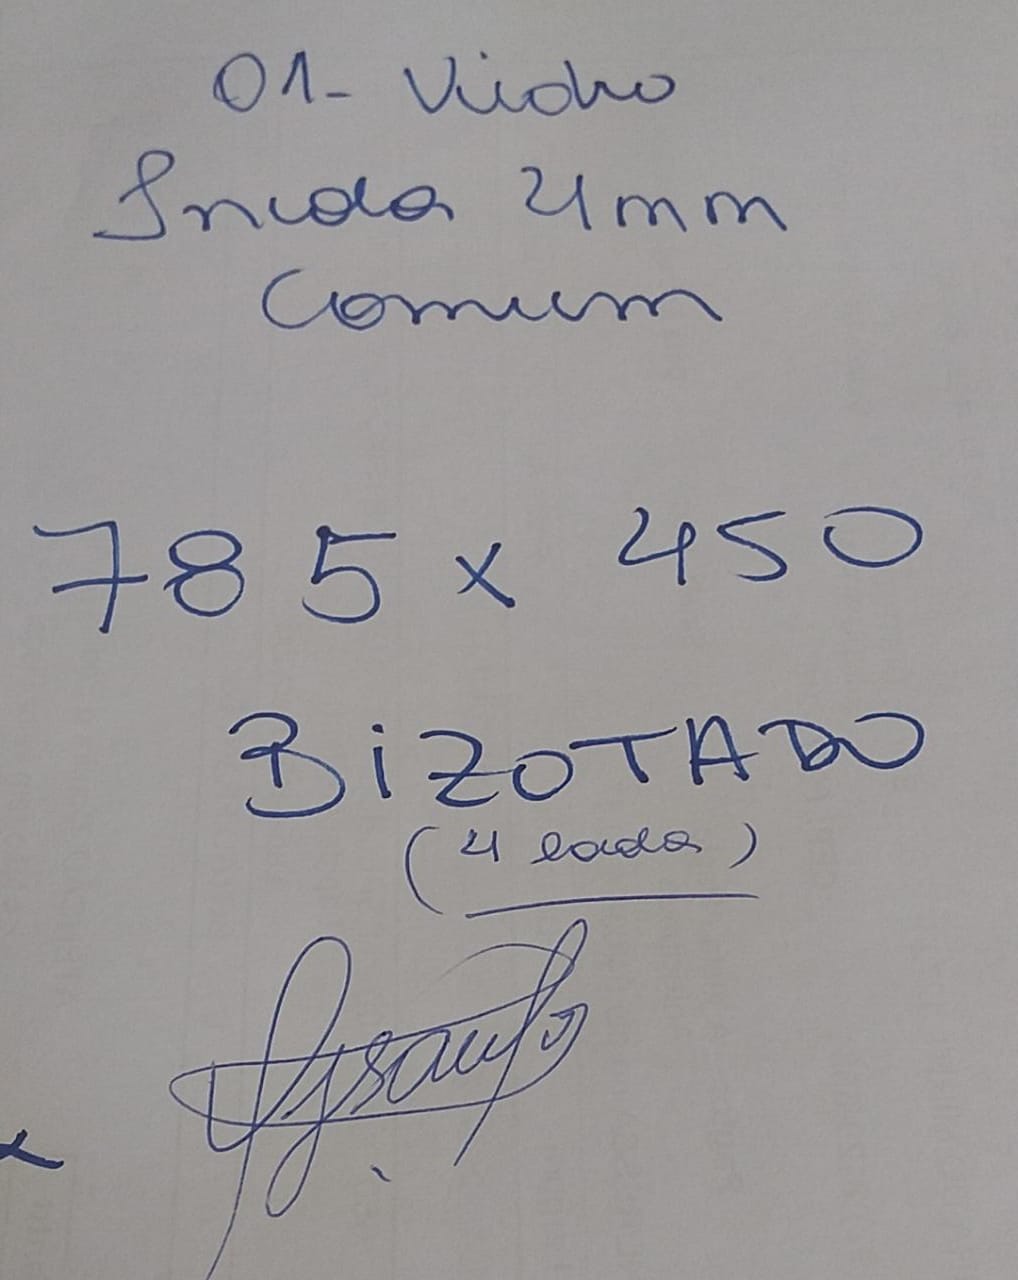 01- Vidro
Incolor 4mm
Comum
785 x 450
BiZOTADO
(4 lados)